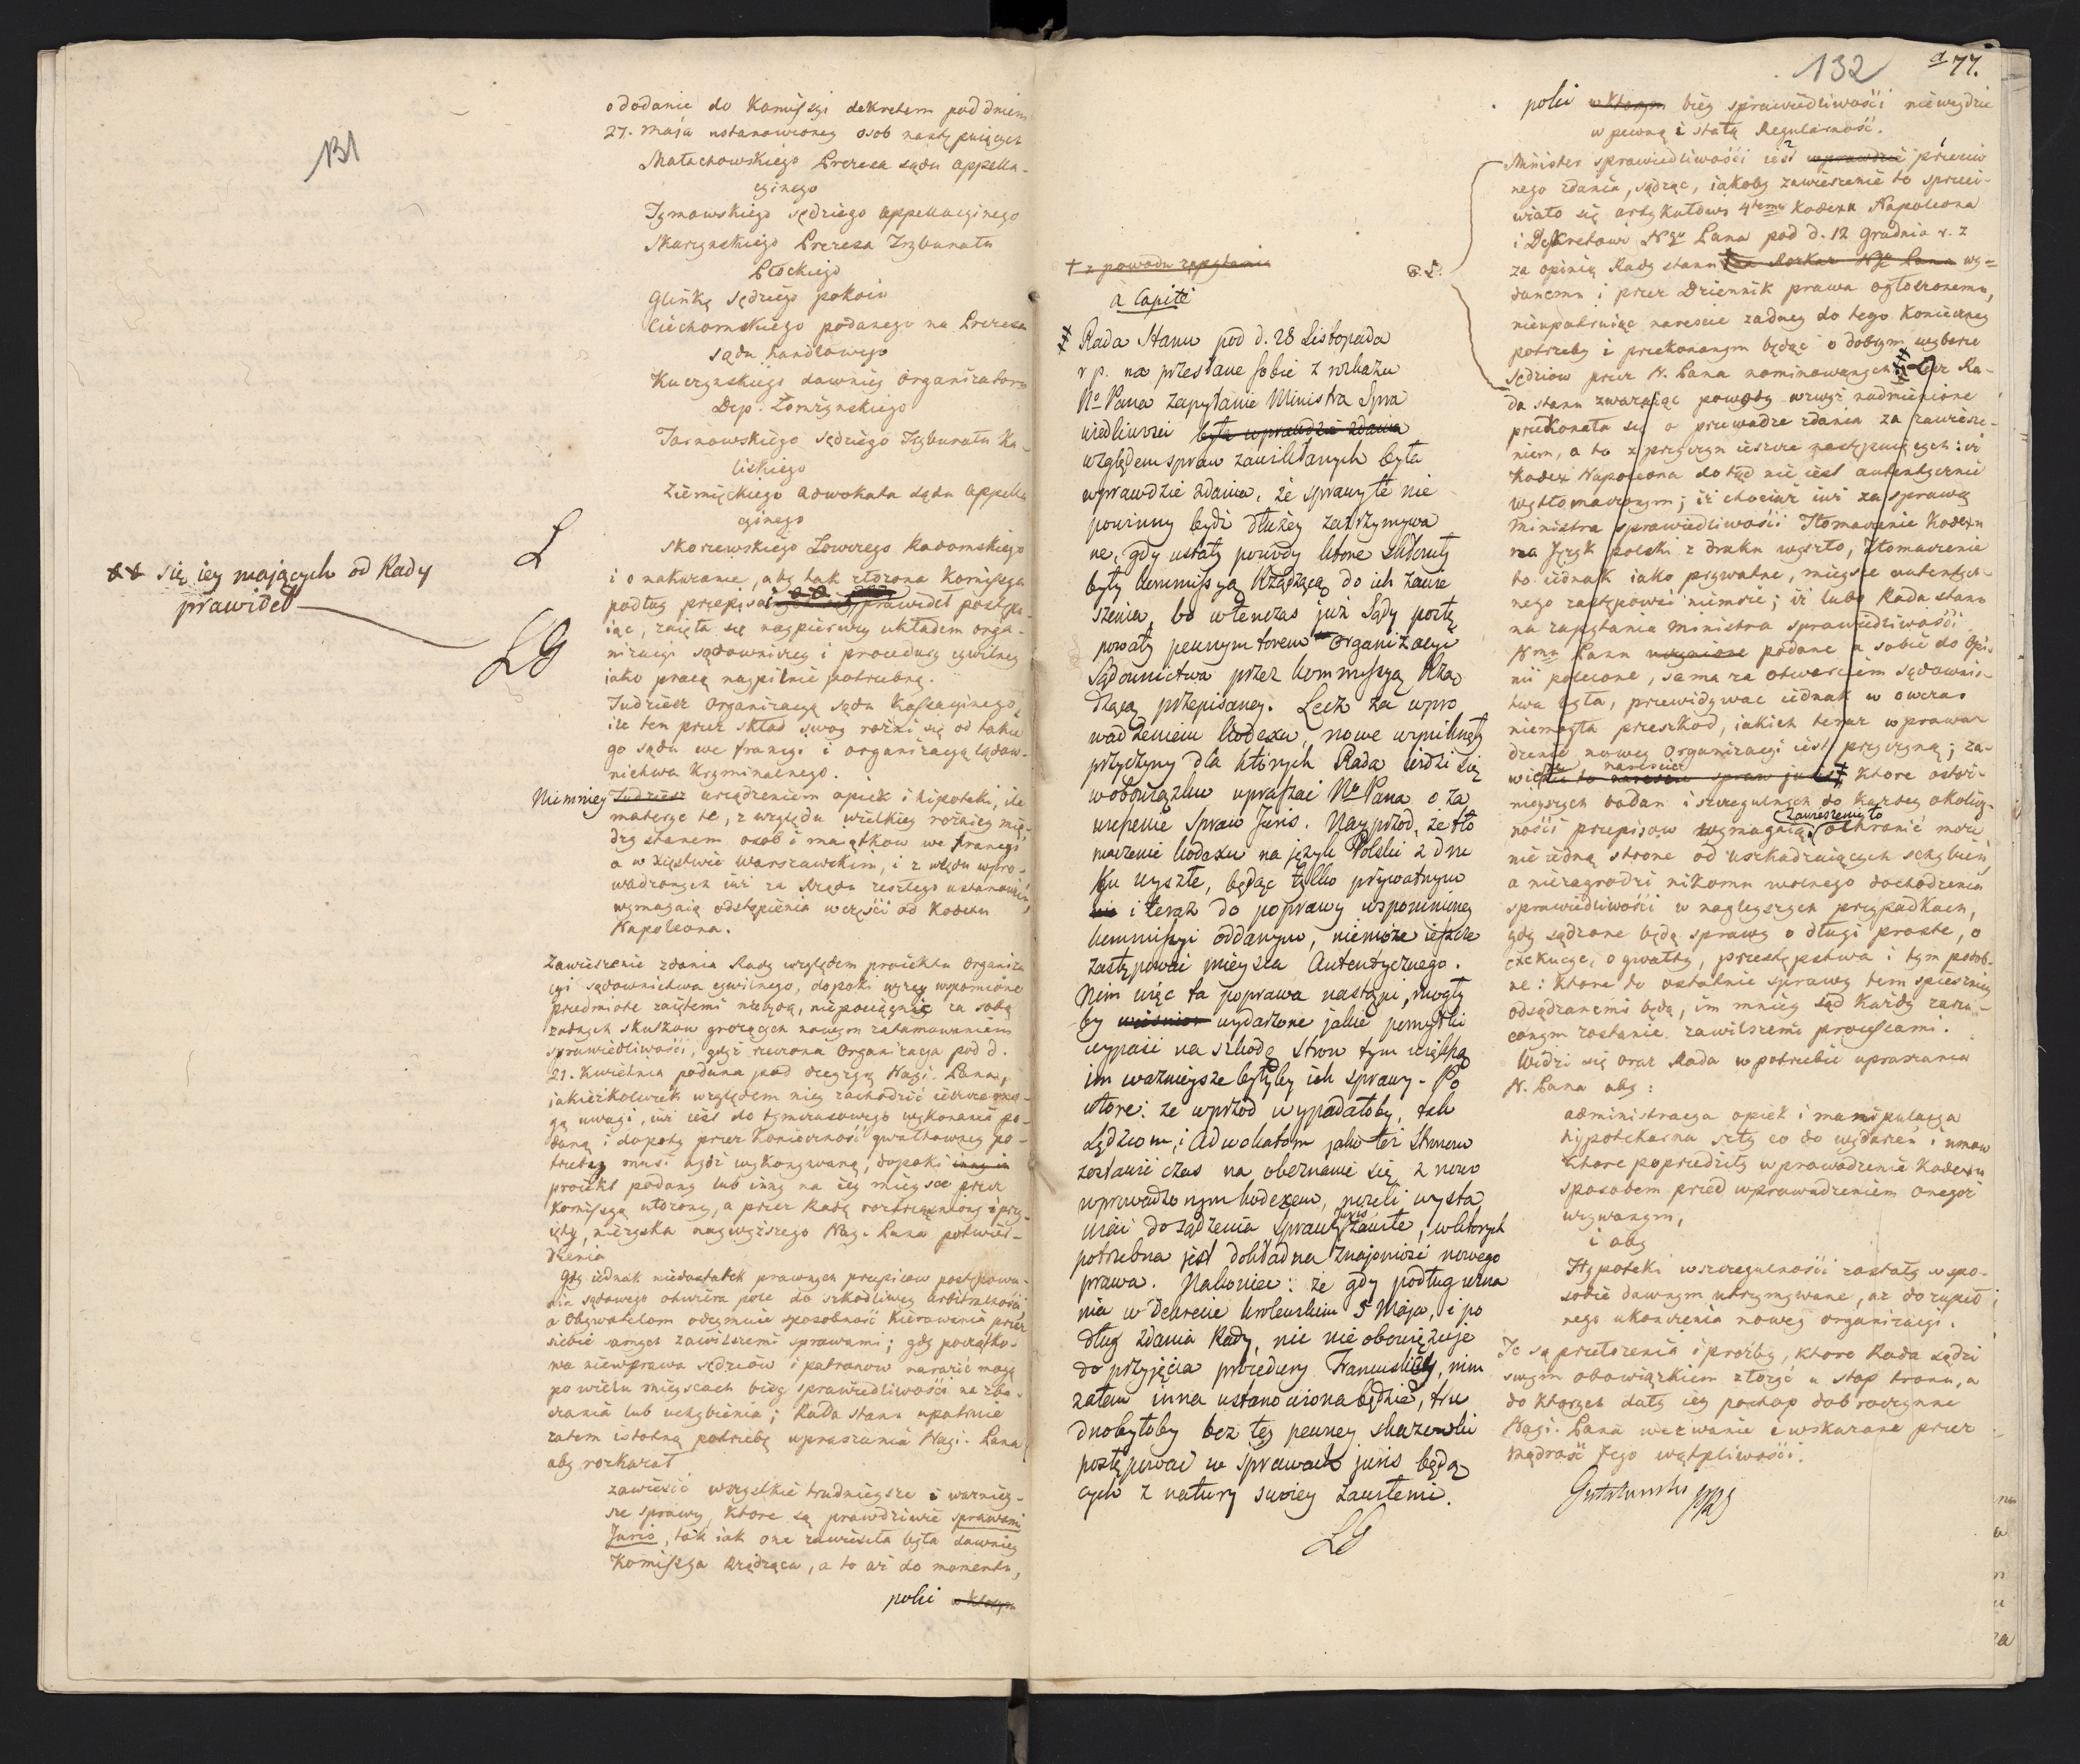 131
o dodanie do Komissyi dekretem pod dniem
27. Maja ustanowioney osob następuiących
Małachowskiego Prezesa sądu appella-
cyinego
Tymowskiego sędziego appellacyinego
Skarzynskiego Prezesa Trybunału
Płockiego
Glinkę sędziego pokoiu
Ciechomskiego podanego na Prezesa
sądu handlowego
Kuczynskiego dawniey organizatora
Dep. Łomżynskiego
Tarnowskiego sędziego Trybunału Ka-
liskiego
Ziemięckiego adwokata sądu appella
cyinego
Skorzewskiego Łowczego Radomskiego
i o nakazanie, aby tak złożona Komissya
podług przepisać prawideł postępu
iąc, zaięła się naypierwey układem orga-
nizacyi sądowniczey i procedury cywilney
iako pracą naypilniey potrzebną.
L
** się iey mających od Rady
prawideł
LG
Tudzież organizacyą sądu Kassacyinego,
ile ten przez skład swoy rożni się od takie
go sądu we francyi i organizacyą sądow-
nictwa kryminalnego.
Niemniey Tudzież urządzeniem opiek i hipoteki, ile
materye te, z względu wielkiey rożnicy mię-
dzy stanem osob i maiątkow we francyi
a w Xięstwie Warszawskim, i z wzlędu wpro-
wadzonych iuż za Rządu zeszłego ustanowień,
wymagaią odstąpienia w części od Kodexu
Napoleona.
Zawieszenie zdania Rady względem proiektu organiza
cyi sądownictwa cywilnego, dopoki wyżey wspomnione
przedmiote zaiętemi niebędą, niepociągnie za sobą
żadnych skutkow grożących nowym zatamowaniem
sprawiedliwości, gdyż rzeczona organizacya pod d.
21. Kwietnia podana pod decyzyą Nayi. Pana,
jakieżkolwiek względem niey zachodzić ieszcze mo-
gą uwagi, iuż iest do tymczasowego wykonania po-
daną i dopoty przez konieczność gwałtowney po-
trzeby musi bydź wykonywaną, dopoki inny ia
proiekt podany lub inny na iey mieysce przez
Komissyą ułożony, a przez Radę roztrząśniony i przy-
ięty, niezyska naywyższego Nay. Pana potwier-
dzenia
Gdy iednak niedostatek prawnych przepisow postępowa-
nia sądowego otwiera pole do szkodliwey arbitralności,
a obywatelom odeymuie sposobność kierowania przez
siebie samych zawilszemi sprawami; gdy początko-
wa niewprawa sędziow i patronow narazić mogą
po wielu mieyscach bieg sprawiedliwości na zbo-
czenia lub uchybienia; Rada stanu upatruie
zatem istotną potrzebę upraszania Nayi. Pana
aby rozkazał
zawiesić wszystkie trudnieysze i ważniey-
sze sprawy, ktore są prawdziwie sprawami
Juris, tak iak one zawiesiła była dawniey
Komissya Rządząca, a to aż do momentu,
poki w ktorym
132
a 77.
† z powodu zapytania
a Capite
‡ Rada Stanu pod d. 28 Listopada
r. p. na przesłane sobie z rozkazu
No Pana zapytanie Ministra Spra
wiedliwości była wprawdzie zdania
względem spraw zawikłanych była
wprawdzie zdania, że sprawy te nie
powinny bydź dłużey zatrzymywa
ne, gdy ustały powody ktore skłoniły
były kommissyą Rządzącą do ich zawie
szenia, bo wtenczas już Sądy postę
powały pewnym torem Organizacyi
Sądownictwa przez kommissyą Rzą
dzącą przepisaney. Lecz za wpro
wadzeniem Kodexu, nowe wyniknęły
przyczyny dla których Rada widzi się
w obowiązku upraszać No Pana o za
wieszenie Spraw Juris. Nayprzod, że tło
maczenie kodexu na język Polski z dru
ku wyszłe, będąc tylko prywatnym
nie i teraz do poprawy wspomnioney
kommissyi oddanym, niemoże ieszcze
zastępować mieysca Autentycznego.
Nim więc ta poprawa nastąpi, mogły
by wydarzone jakie pomyłki
wypaść na szkodę stron tym większą
im ważnieysze byłyby ich sprawy. Po
wtore: że wprzod wypadałoby, tak
Sędziom, i Adwokatom jako też Stronom
zostawić czas na obeznanie się z nowo
wprowadzonym kodexem, niżeli wysta
wiać do sądzenia sprawy juris zawiłe, w ktorych
potrzebna jest dokładna znajomość nowego
prawa. Nakoniec: że gdy podług uzna
nia w Dekrecie krolewskim 5 Maja, i po
dług zdania Rady, nic nie obowiązuje
do przyjęcia procedury Francuskiey, nim
zatem inna ustanowiona będzie, tru
dnobyłoby bez tey pewney skazowki
postępować w sprawach juris będą
cych z natury swoiey zawiłemi.
LG
poki w ktorym bieg sprawiedliwości niewydzie
w pewną i stałą Regularność.
Minister sprawiedliwości iest wprawdzie przeciw
nego zdania, sądząc, iakoby zawieszenie to sprzeci-
wiało się artykułowi 4temu Kodexu Napoleona
i Dekretowi Ngo Pana pod d. 12 Grudnia r. z
za opinią Rady stanu na Rozkaz Ngo Pana wy=
danemu i przez Dziennik prawa ogłoszonemu,
nieupatruiąc nareszcie żadney do tego konieczney
potrzeby i przekonanym będąc o dobrym wyborze
sędziow przez N. Pana nominowanych. Lecz Ra-
da stanu zważaiąc powody wzwyż nadmienione
przekonała się o przewadze zdania za zawiesze-
niem, a to z przyczyn ieszcze następuiących: iż
Kodex Napoleona dotąd nie iest autentycznie
wytłomaczonym; iż chociaż iuż za sprawą
Ministra sprawiedliwości Tłomaczenie Kodexu
na Język polski z druku wyszło, tłomaczenie
to iednak iako prywatne, mieysce autentycz-
nego zastępować niemoże; iż lubo Rada stanu
na zapytania Ministra sprawiedliwości
Nmu Panu podane a sobie do Opi-
nii polecone, sama za otwarciem sądownic-
twa była, przewidywać iednak w owczas
niemogła przeszkod, iakich teraz wprowa-
dzenie nowey Organizacyi iest przyczyną; za-
wieszenie to nareszcie spraw juris, ktore ostroż-
nieyszych badań i szczegulnych do każdey okolicz-
ności przepisow wymagaią, zawieszenie to ochronić może
nie iedną stronę od uszkadzaiących uchybień
a niezagrodzi nikomu wolnego dochodzenia
sprawiedliwości w naglejszych przypadkach,
gdy sądzone będą sprawy o długi proste, o
exekucye, o gwałty, przestępstwa i tym podob-
ne: ktore to ostatnie sprawy tem spieszniey
odsądzanemi będą, im mniey sąd każdy zarzu-
conym zostanie zawilszemi processami.
Widzi się oraz Rada w potrzebie upraszania
N. Pana aby:
administracya opiek i manipulacya
hypotekarna szły co do wydarzeń i umow
ktore poprzedziły wprowadzenie Kodexu
sposobem przed wprowadzeniem onegoż
używanym,
i aby
Hypoteki w szczegulności zostały w spo-
sobie dawnym utrzymywane, aż do zupeł-
nego ukończenia nowey organizacyi.
Te są przełożenia i prozby, ktore Rada sądzi
swym obowiązkiem złożyć u stop tronu, a
do ktorych dały iey pochop dobroczynne
Nayi. Pana wezwanie i wskazane przez
Mądrość Jego wątpliwości.
Gutakowski PRS